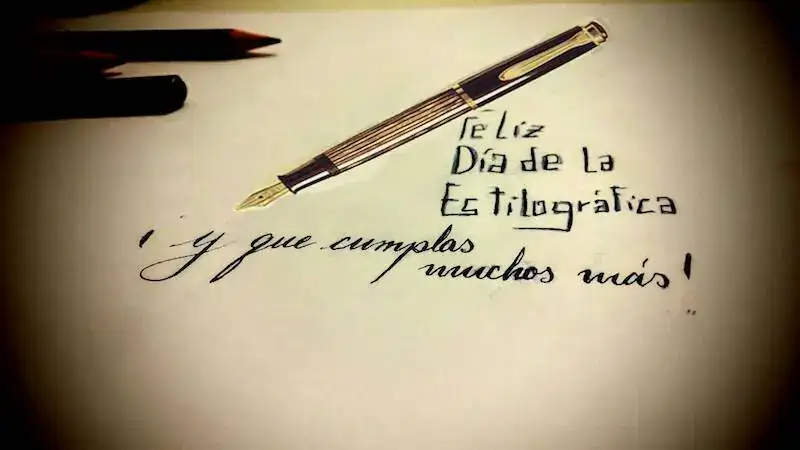 Feliz
Día de La
Estilográfica
¡y que cumplas
muchos más!